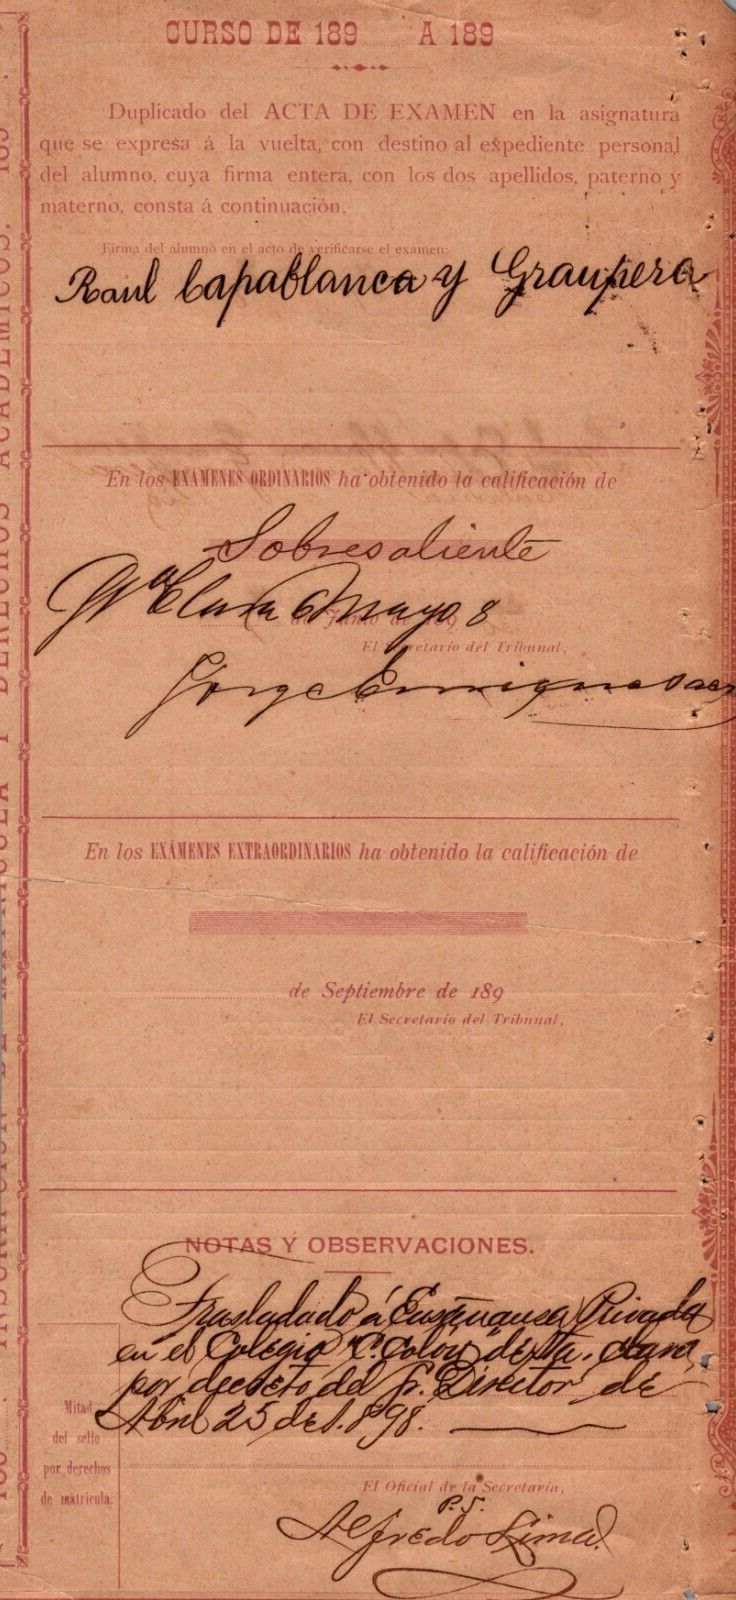 CURSO DE 189 A 189
Duplicado del ACTA DE EXAMEN en la asignatura
que se expresa á la vuelta, con destino al expediente personal
del alumno, cuya firma entera, con los dos apellidos, paterno y
materno, consta á continuación.
Firma del alumno en el acto de verificarse el examen:
Raul Capablanca y Graupera
En los EXÁMENES ORDINARIOS ha obtenido la calificación de
Sobresaliente
Sta Clara Mayo 8
de Junio de 189
El Secretario del Tribunal,
Jorge
En los EXÁMENES EXTRAORDINARIOS ha obtenido la calificación de
de Septiembre de 189
El Secretario del Tribunal,
NOTAS Y OBSERVACIONES.
Trasladado á Enseñanza Privada
en el Colegio "C. Colón" de Sta. Clara,
por decreto del Sr. Director de
Abril 25 de 1.898.
Mitad
del sello
por derechos
de matrícula.
El Oficial de la Secretaría,
P.S.
Alfredo Lima
INSCRIPCIÓN DE MATRÍCULA Y DERECHOS ACADÉMICOS.